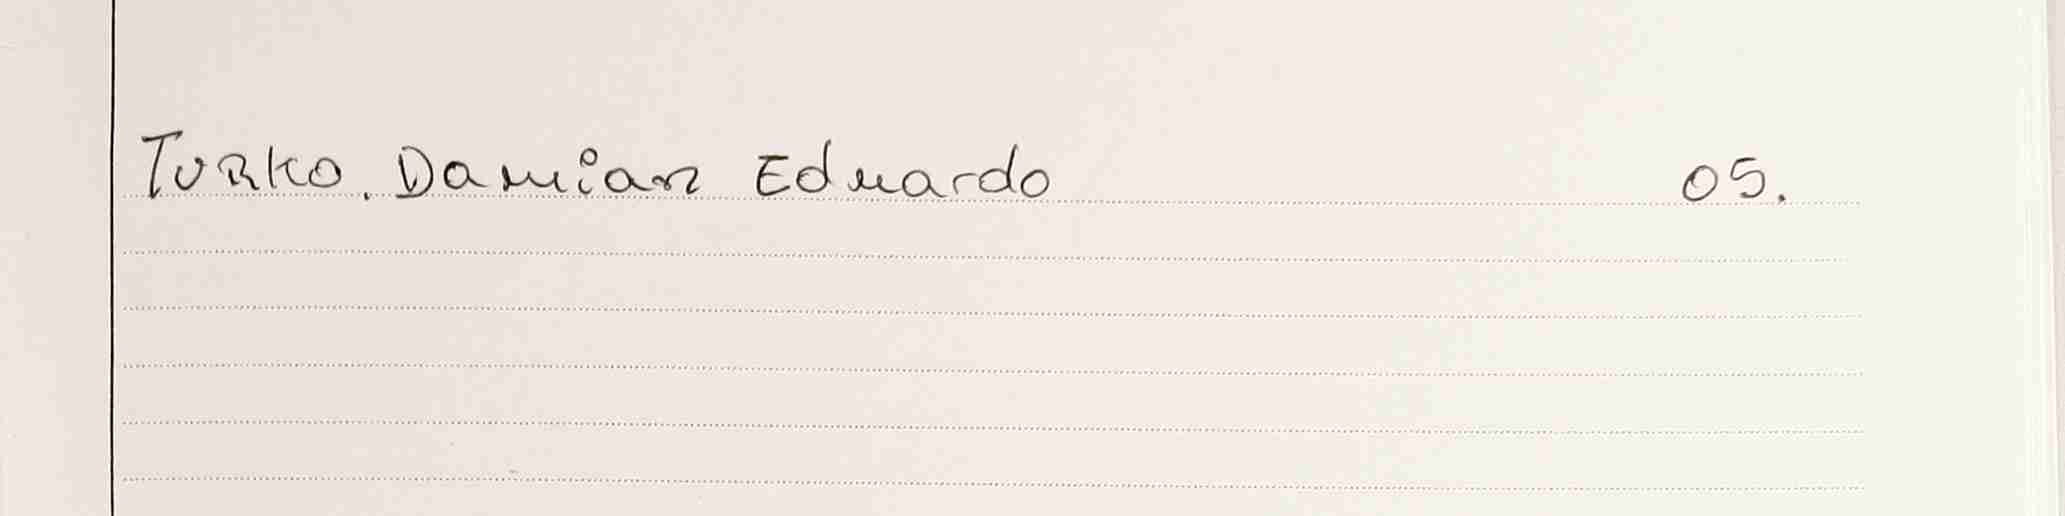 Turko. Damian Eduardo 05.